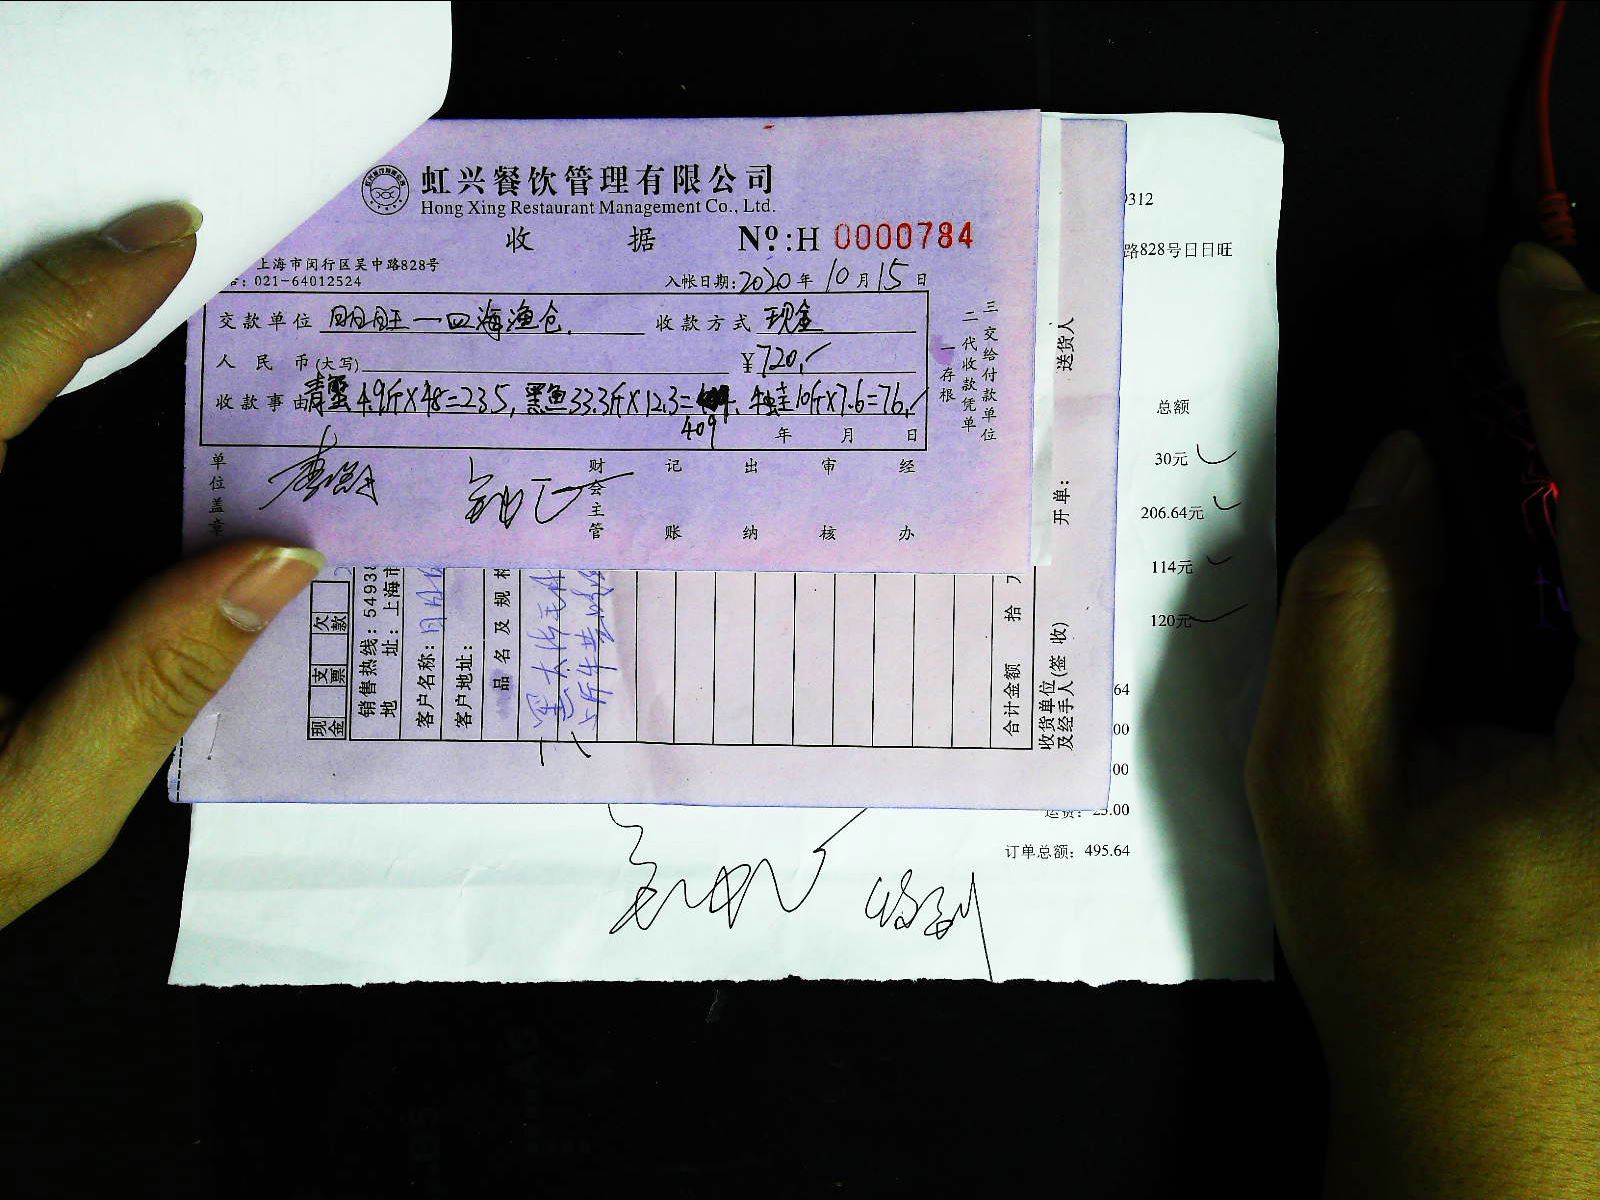 虹兴餐饮管理有限公司
Hong Xing Restaurant Management Co., Ltd.
收 据 Nº:H 0000784
上海市闵行区吴中路828号
:021-64012524 入帐日期:2020年10月15日
交款单位 日日旺—四海渔仓. 收款方式 现金
人民币(大写) ¥720,
收款事由青蟹4.9斤×48=235,黑鱼33.3斤×12.3= 牛蛙10斤×7.6=76,
409
年 月 日
一存根
二代收款凭单
三交给付款单位
单位盖章
财会主管 记账 出纳 审核 经办
0312
路828号日日旺
总额
30元
206.64元
114元
120元
64
00
00
运费: 25.00
订单总额: 495.64
收到
送货人
开单:
现金 支票 欠款
销售热线: 54938
地 址: 上海市
客户名称: 日日旺
客户地址:
品名及规格
合计金额 拾
收货单位(签收)
及经手人